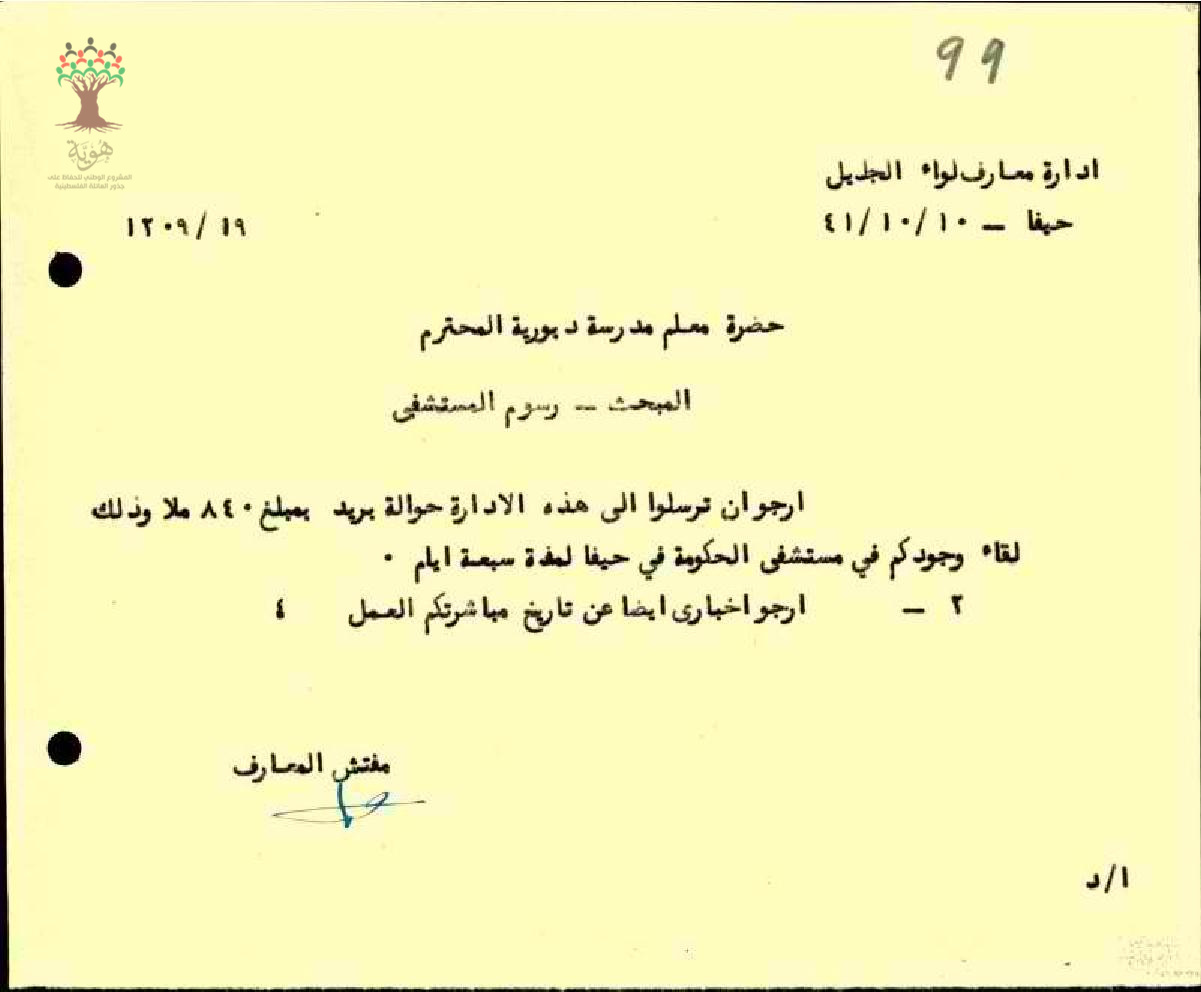 99
هوية
المشروع الوطني للحفاظ على
جذور العائلة الفلسطينية
ادارة معارف لواء الجليل
حيفا — ٤١/١٠/١٠
١٢٠٩/١٩
حضرة معلم مدرسة دبورية المحترم
المبحث — رسوم المستشفى
ارجو ان ترسلوا الى هذه الادارة حوالة بريد بمبلغ ٨٤٠ ملا وذلك
لقاء وجودكم في مستشفى الحكومة في حيفا لمدة سبعة ايام ٠
٢ — ارجو اخبارى ايضا عن تاريخ مباشرتكم العمل ٤
مفتش المعارف
ا/د